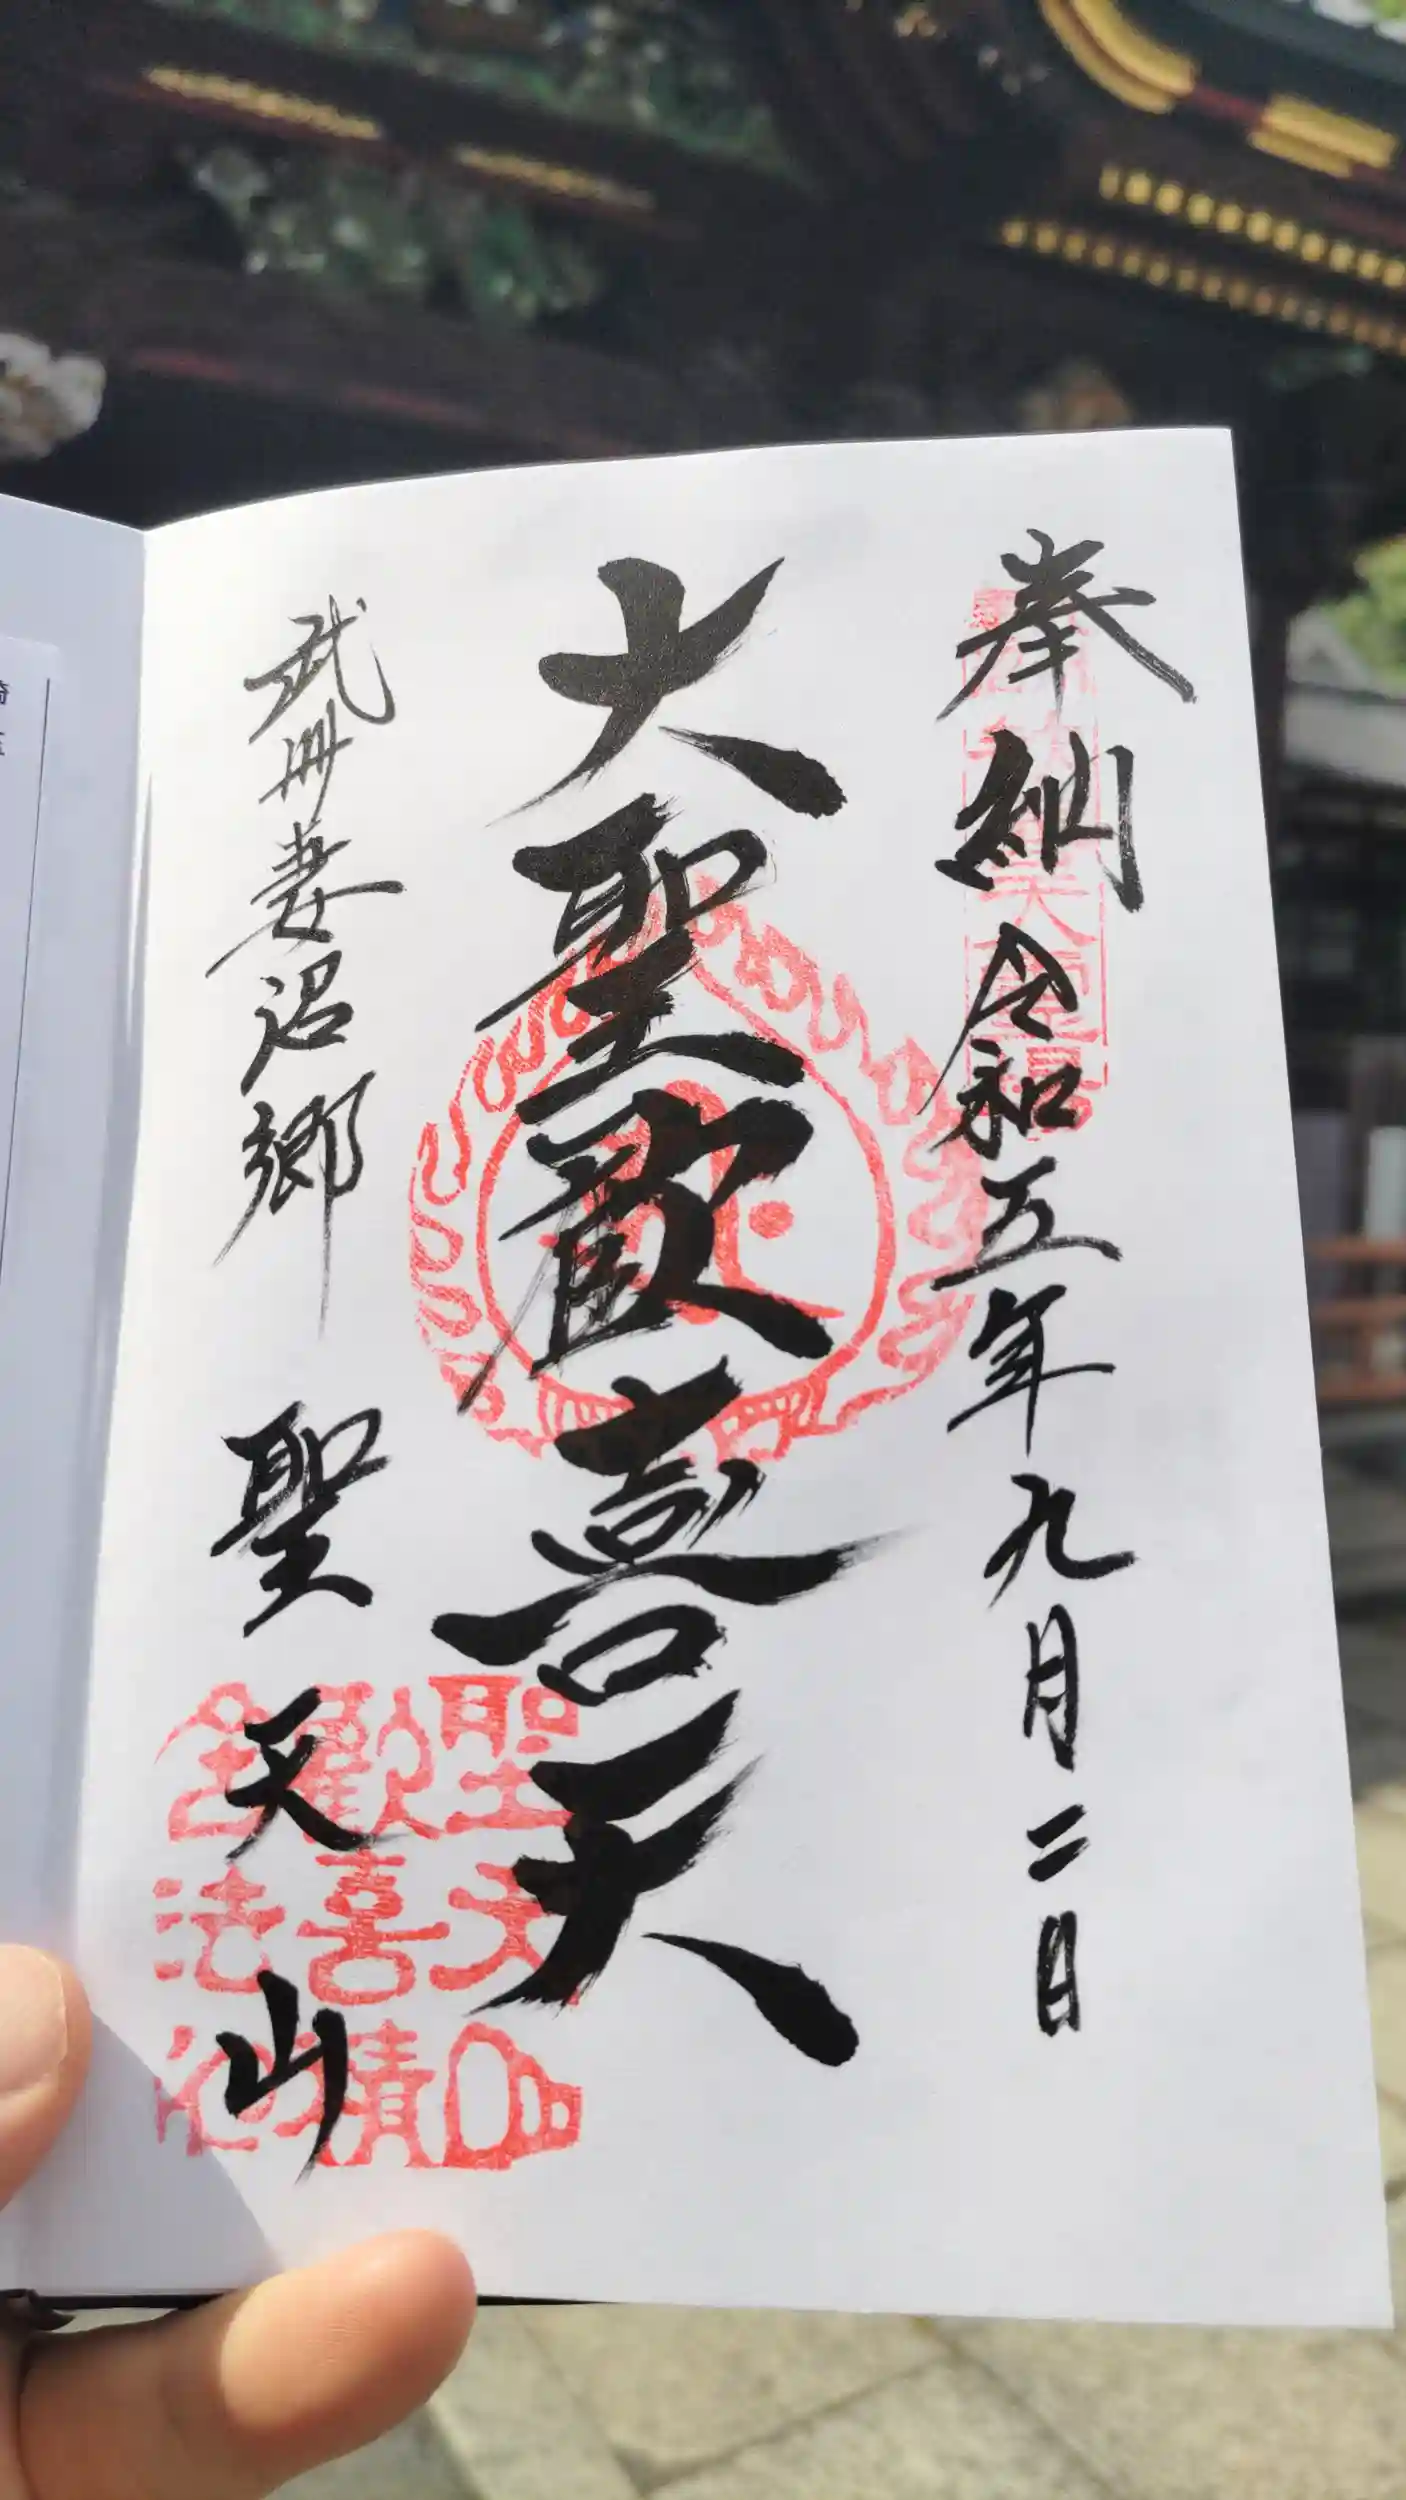 奉納 令和五年九月二日
大聖歓喜天
武州妻沼郷 聖天山
聖天山
歡喜精
舎法印